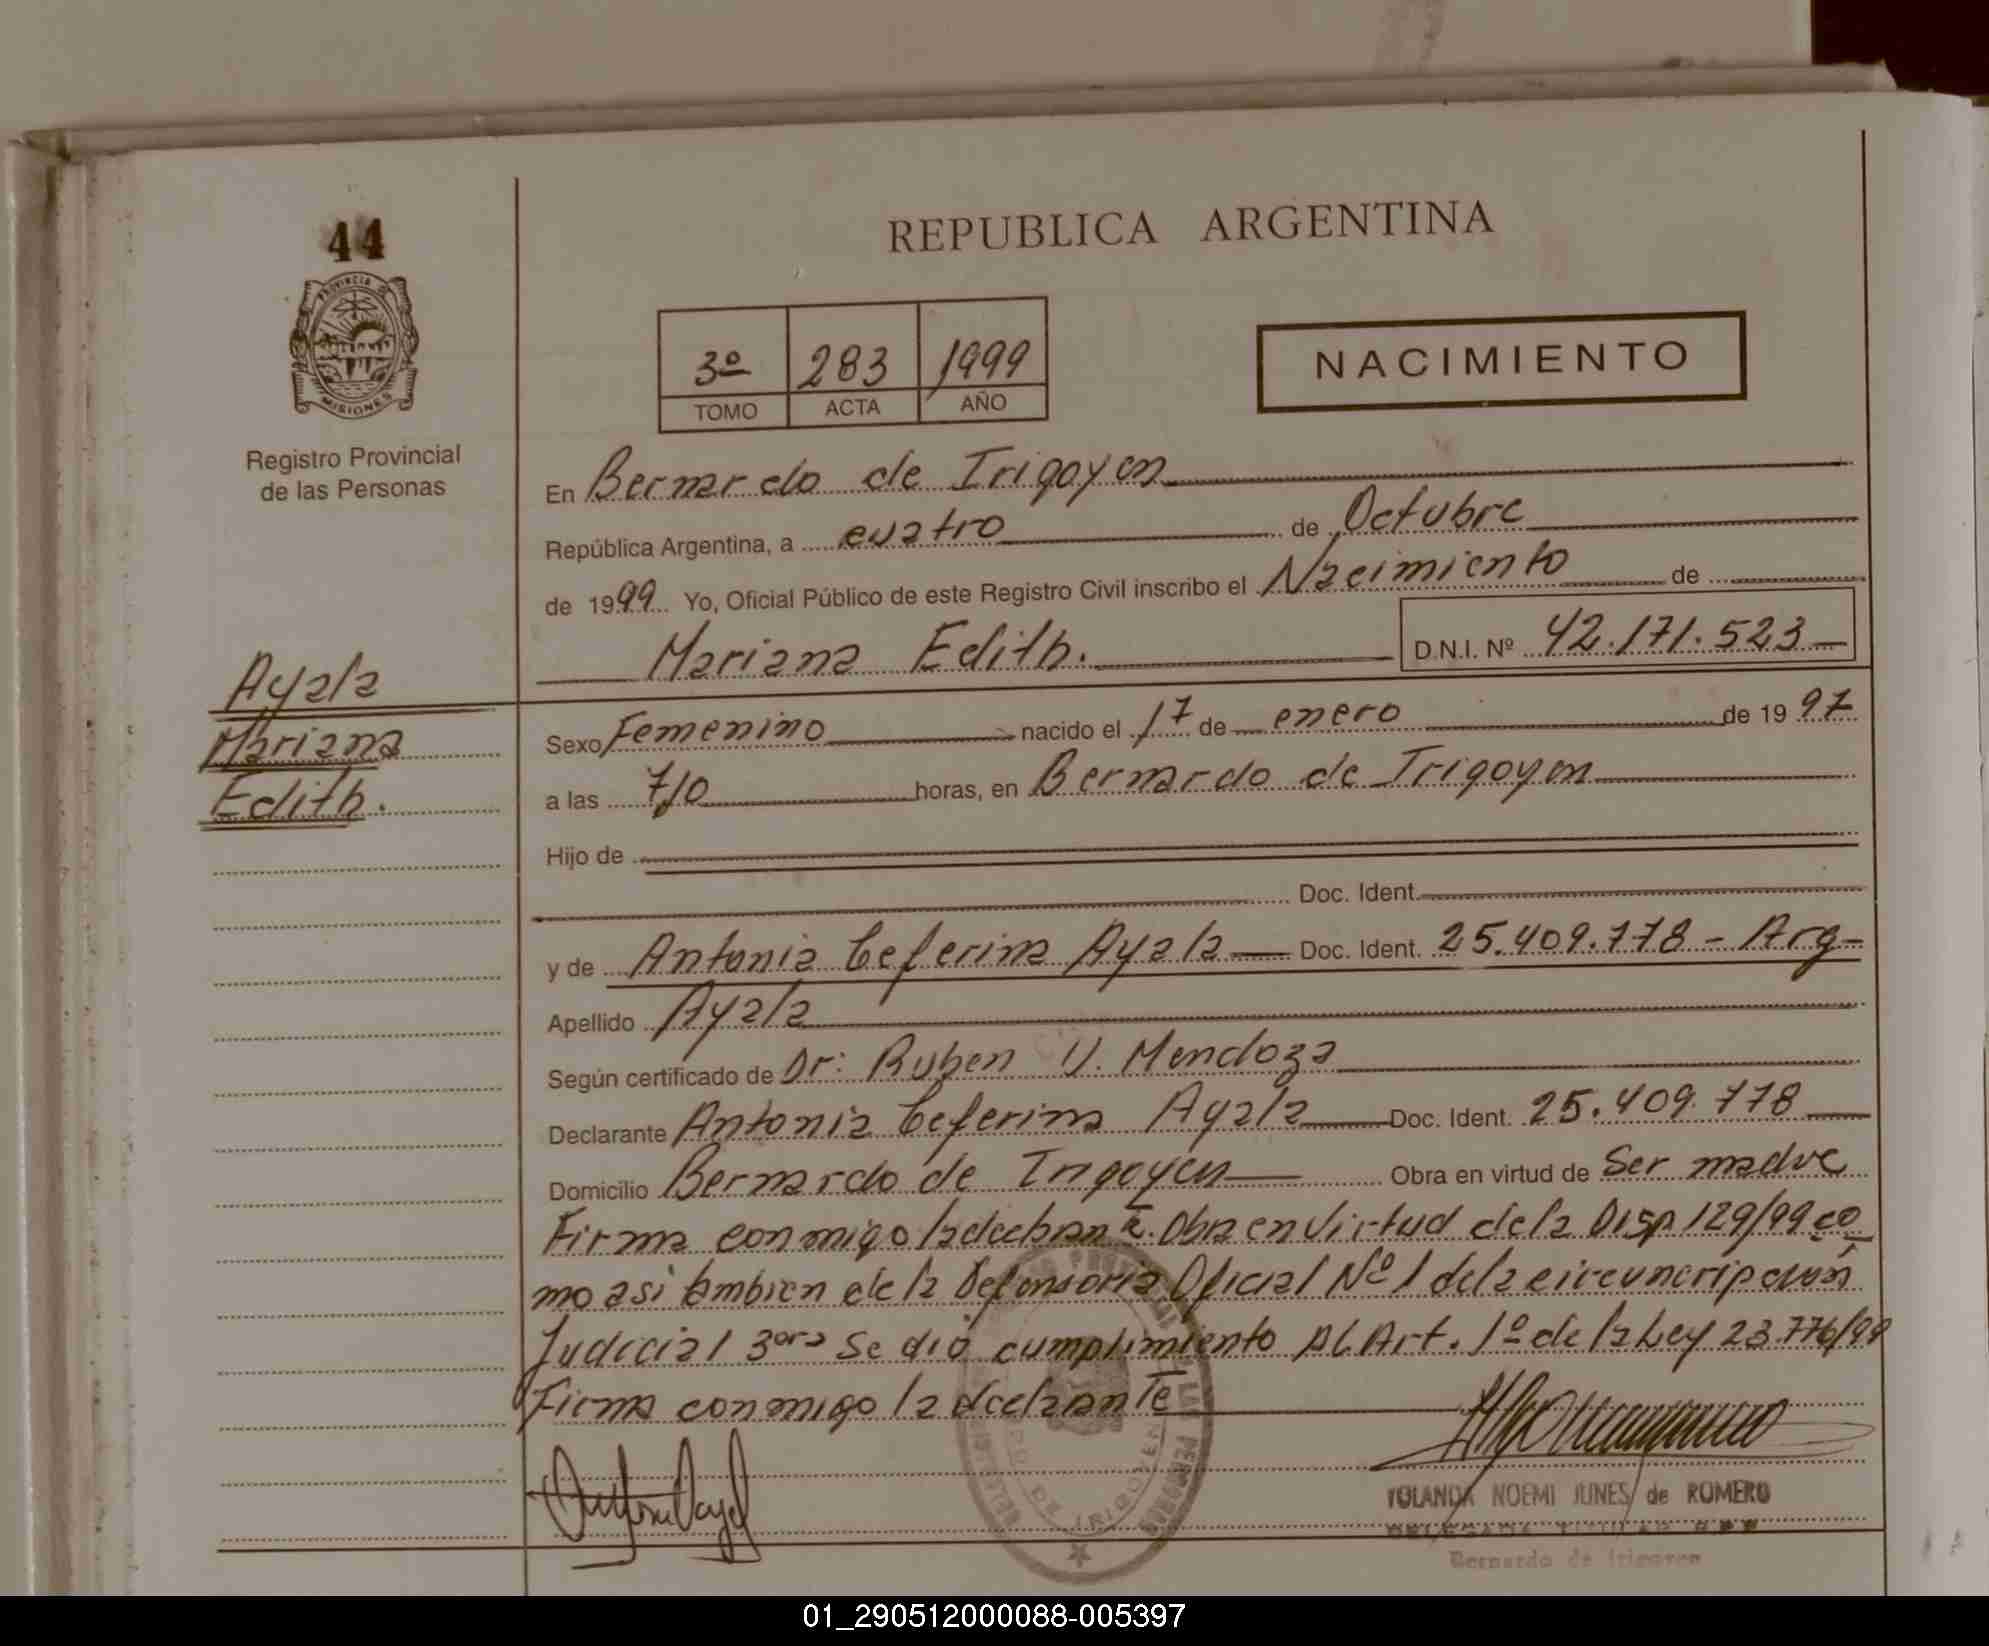 44
PROVINCIA DE
MISIONES
Registro Provincial
de las Personas
REPUBLICA ARGENTINA
3º 283 1999
TOMO ACTA AÑO
NACIMIENTO
En Bernardo de Irigoyen
República Argentina, a cuatro de Octubre
de 1999 Yo, Oficial Público de este Registro Civil inscribo el Nacimiento de
Mariana Edith. D.N.I. Nº 42.171.523
Ayala
Mariana
Edith.
Sexo Femenino nacido el 17 de enero de 1997
a las 7,10 horas, en Bernardo de Irigoyen
Hijo de
Doc. Ident.
y de Antonia Ceferina Ayala Doc. Ident. 25.409.778 - Arg-
Apellido Ayala
Según certificado de Dr: Ruben V. Mendoza
Declarante Antonia Ceferina Ayala Doc. Ident. 25.409.778
Domicilio Bernardo de Irigoyen Obra en virtud de Ser madre
Firma conmigo la declarante. Obra en Virtud de la Disp 129/99 co
mo asi tambien de la Defensoria Oficial Nº 1 de la circuncripcion
Judicial 3era Se dió cumplimiento Al Art. 1º de la Ley 23.776/99
Firma conmigo la declarante
YOLANDA NOEMI JUNES de ROMERO
DELEGADA TITULAR R.P.P.
Bernardo de Irigoyen
01_290512000088-005397